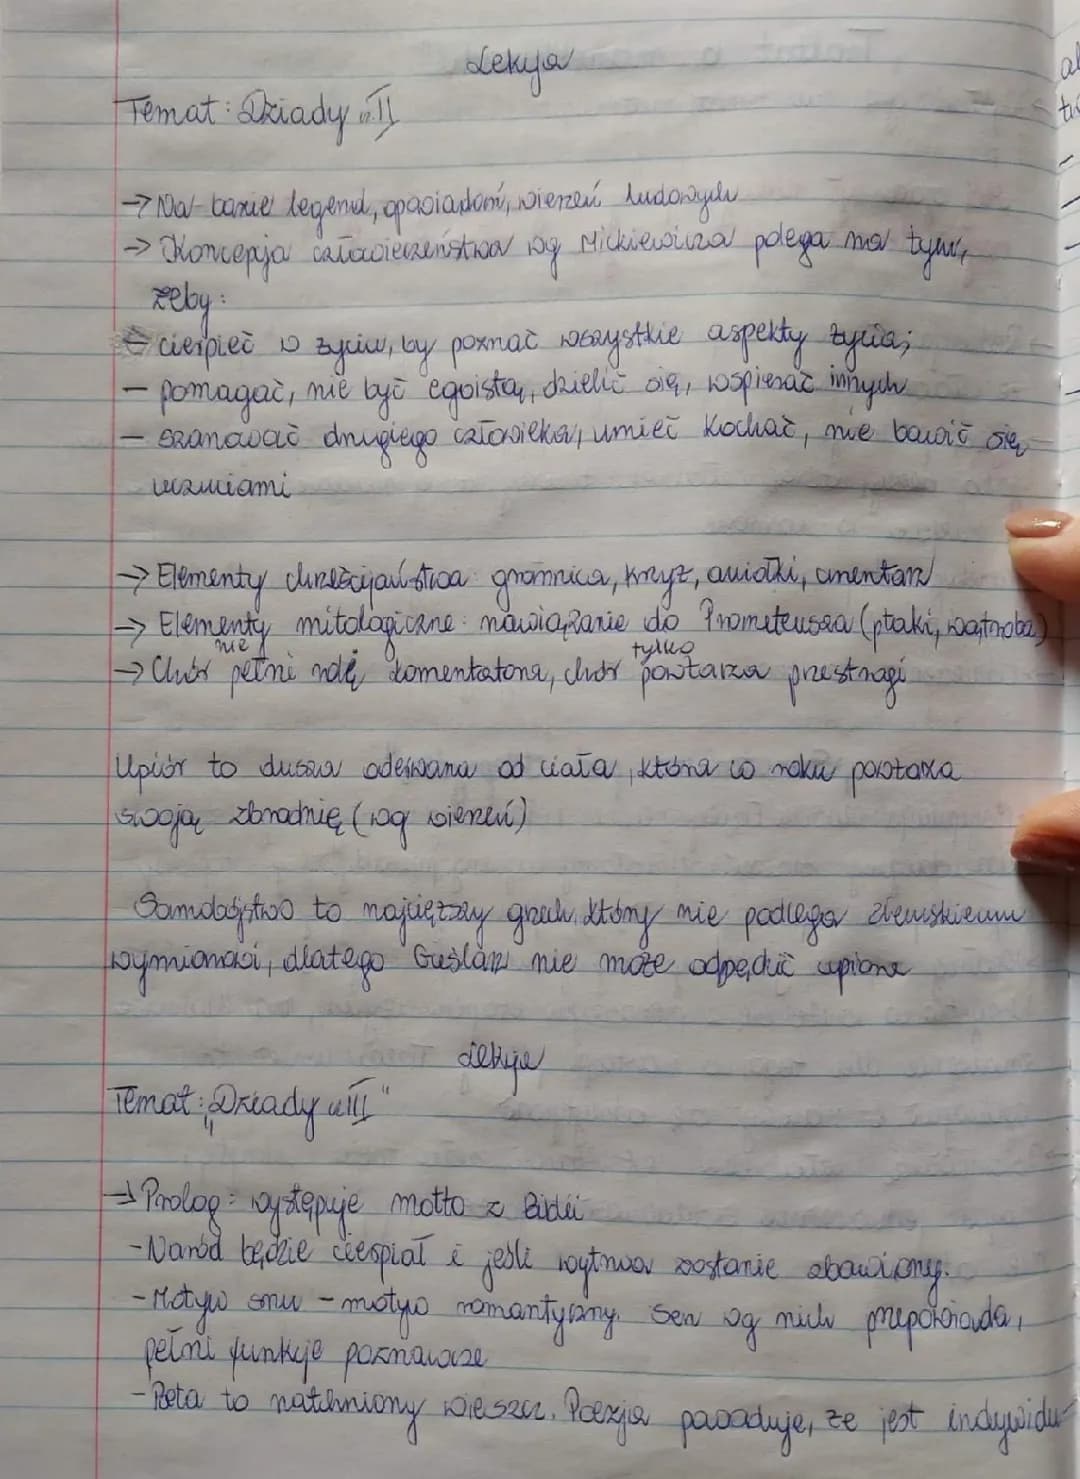 Lekcja
Temat: Dziady cz. II
→ Na bazie legend, opowiadań, wierzeń ludowych
→ Koncepcja człowieczeństwa wg Mickiewicza polega na tym,
żeby:
- cierpieć w życiu, by poznać wszystkie aspekty życia;
- pomagać, nie być egoistą, dzielić się, wspierać innych
- szanować drugiego człowieka, umieć kochać, nie bawić się
uczuciami
→ Elementy chrześcijaństwa: gromnica, krzyż, aniołki, cmentarz
→ Elementy mitologiczne: nawiązanie do Prometeusza (ptaki, wątroba)
→ Chór nie pełni rolę komentatora, chór tylko powtarza przestrogi
Upiór to dusza oderwana od ciała, która co roku powtarza
swoją zbrodnię (wg wierzeń)
Samobójstwo to najcięższy grzech, który nie podlega ziemskiemu
wymiarowi, dlatego Guślarz nie może odpędzić upiora
Lekcja
Temat: "Dziady cz. III"
→ Prolog: występuje motto z Biblii
- Naród będzie cierpiał i jeśli wytrwa zostanie zbawiony.
- Motyw snu - motyw romantyczny. Sen wg nich przepowiada,
pełni funkcje poznawcze
- Poeta to natchniony wieszcz. Poezja powoduje, że jest indywidu